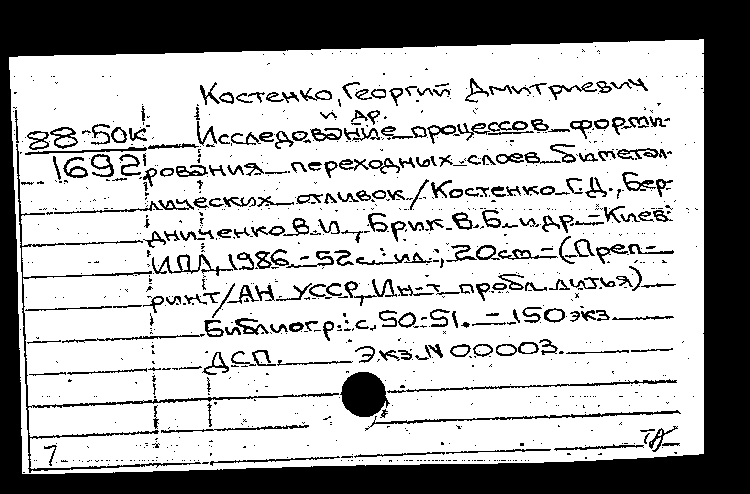 Костенко, Георгий Дмитриевич
и др.
88-50к Исследование процессов форми-
1692 рования переходных слоев биметал-
лических отливок / Костенко Г.Д., Бер-
дниченко В.И., Брик В.Б. и др. - Киев:
ИПЛ, 1986. - 52с.: ил.; 20см. - (Преп-
ринт / АН УССР, Ин-т пробл. литья)
Библиогр.: с. 50-51. - 150 экз.
ДСП. Экз. N 00003.
7